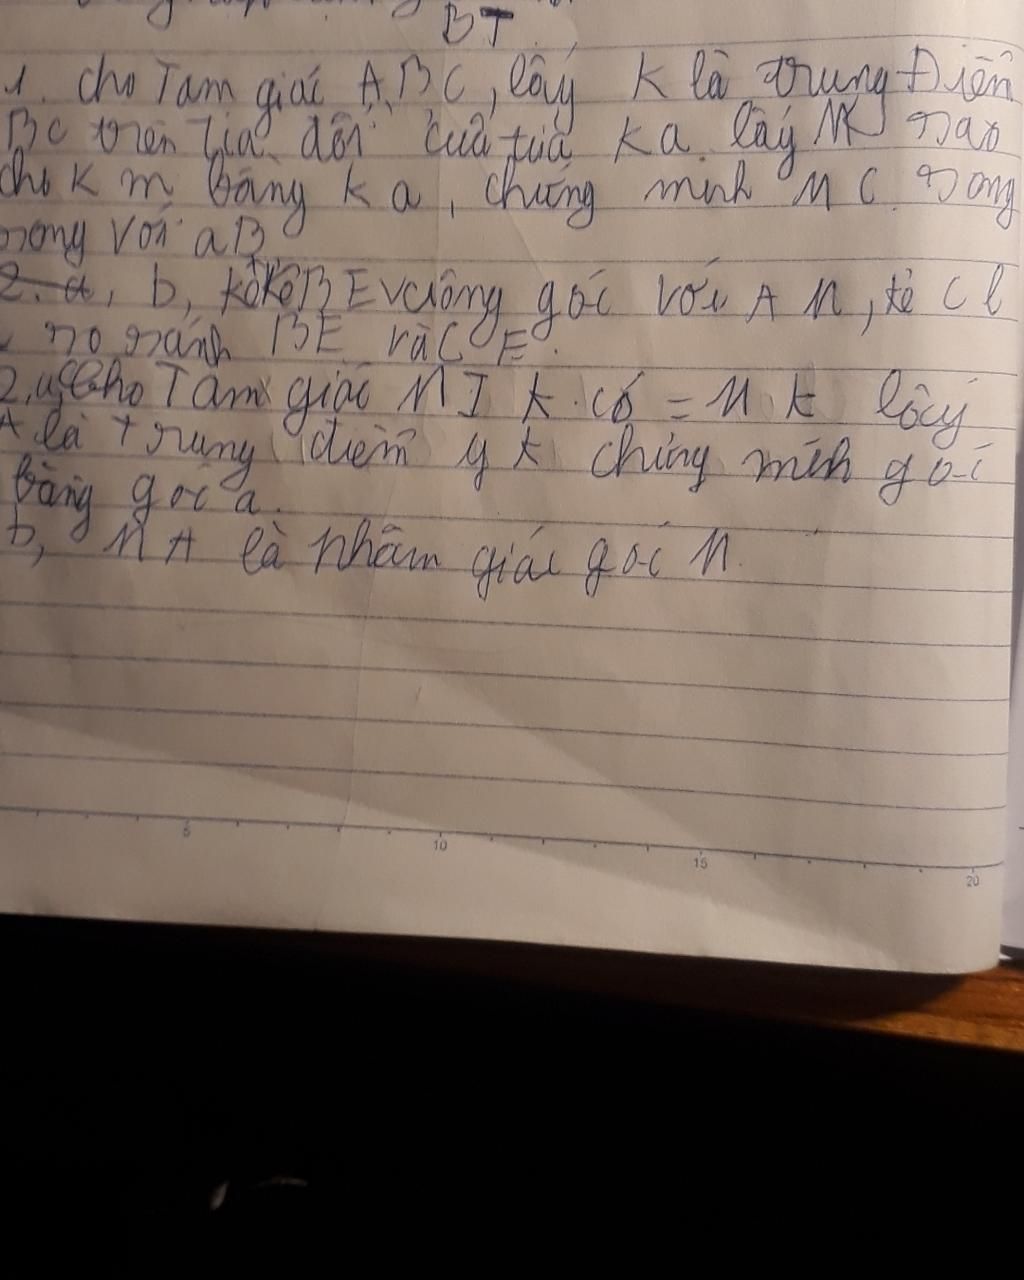 BT
1. cho Tam giác ABC, lấy K là trung Điểm
BC trên tia đối của tia Ka. lấy M sao
cho Km bằng Ka, chứng minh MC song
song với aB
b, kẻ BE vuông góc với AM, kẻ Cl
so sánh BE và CE.
2, Cho Tam giác MIK có = MK lấy
A là trung điểm yk chứng minh góc
bằng góc a.
b, MA là phâm giác góc M.
5 10 15 20